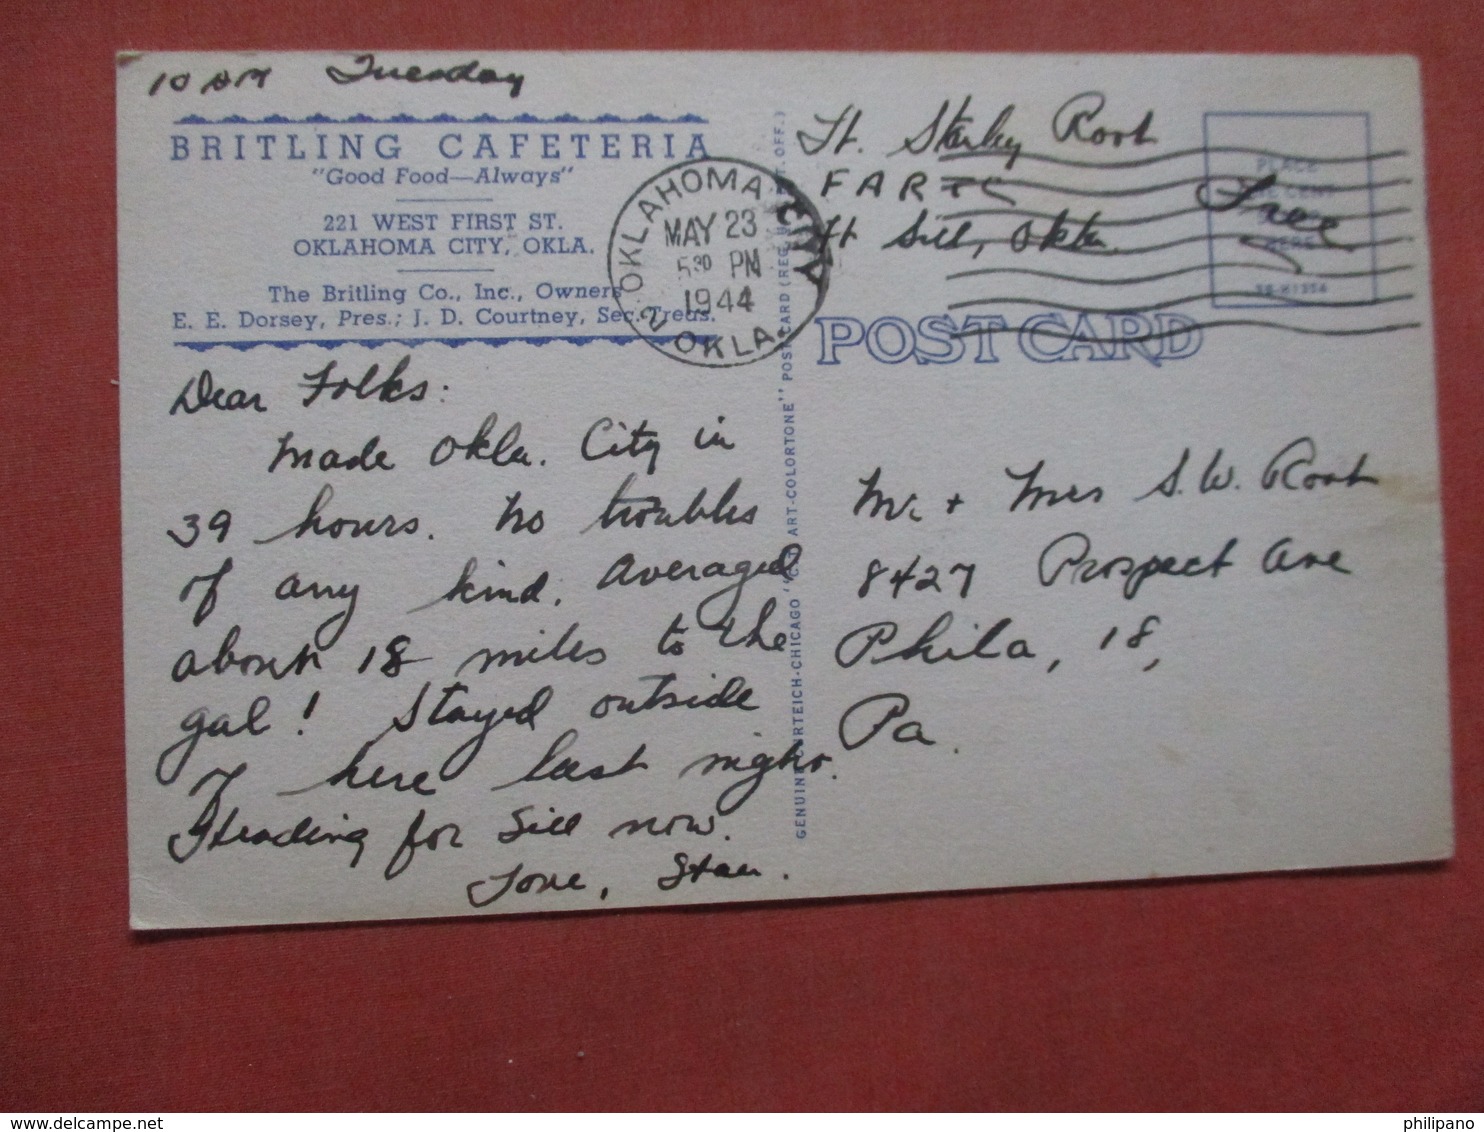 10 AM Tuesday
BRITLING CAFETERIA
"Good Food—Always"
221 WEST FIRST ST.
OKLAHOMA CITY, OKLA.
The Britling Co., Inc., Owners
E. E. Dorsey, Pres.; J. D. Courtney, Sec. Treas.
Dear Folks:
Made Okla. City in
39 hours. No troubles
of any kind. Averaged
about 18 miles to the
gal! Stayed outside
of here last night.
Heading for Sill now.
Love, Stan.
OKLAHOMA CITY
MAY 23
5 30 PM
1944
2 OKLA.
GENUINE CURTEICH-CHICAGO "C.T. ART-COLORTONE" POST CARD (REG. U.S. PAT. OFF.)
Lt. Stanley Root
FARTC
Ft Sill, Okla.
Free
PLACE
ONE CENT
HERE
POST CARD
Mr + Mrs S.W. Root
8427 Prospect Ave
Phila, 18,
Pa.
philipano